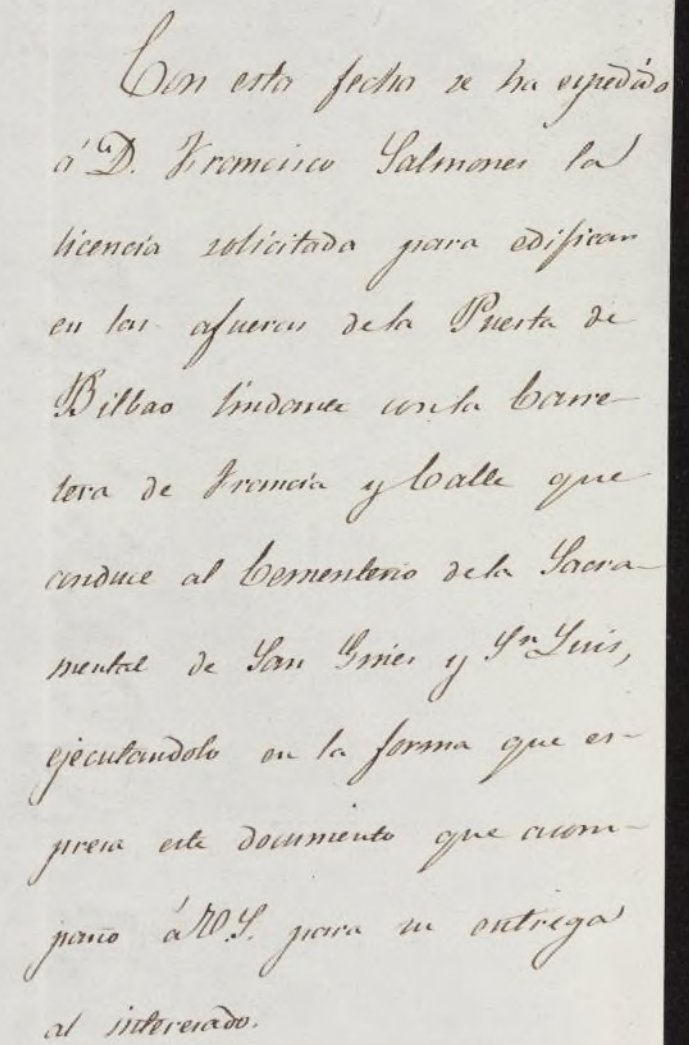 Con esta fecha se ha espedido
á D. Francisco Salmones la
licencia solicitada para edificar
en las afueras dela Puerta de
Bilbao lindante con la Carre-
tera de Francia y Calle que
conduce al Cementerio dela Sacra-
mental de San Gines y Sn Luis,
ejecutandolo en la forma que es-
presa este documento que acom-
paño á V.S. para su entrega
al interesado.